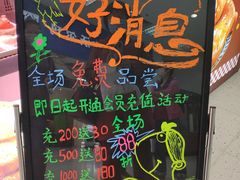 好消息
全场免费品尝
即日起开通会员充值活动
充200送30 全场
充500送80 88折
充1000送